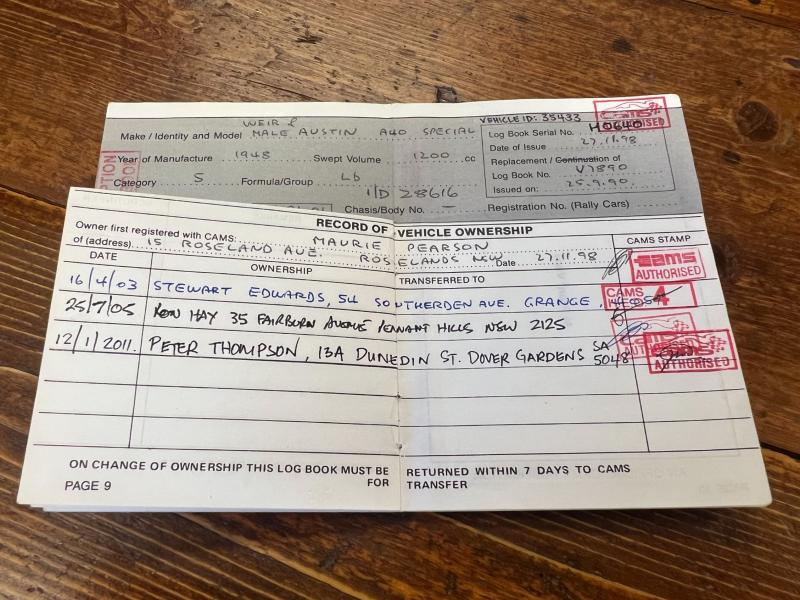 WEIR &
Make / Identity and Model MALE AUSTIN A40 SPECIAL
VEHICLE ID: 35433
Year of Manufacture 1948 Swept Volume 1200 cc
Category S Formula/Group Lb
I/D 28616
Chasis/Body No. –
Log Book Serial No. H0640
Date of Issue 27.11.98
Replacement / Continuation of
Log Book No. V7890
Issued on: 25.9.90
Registration No. (Rally Cars)
RECORD OF VEHICLE OWNERSHIP
Owner first registered with CAMS: MAURIE PEARSON
of (address) 15 ROSELAND AVE. ROSELANDS NSW Date 27.11.98
CAMS STAMP
DATE OWNERSHIP TRANSFERRED TO
CAMS AUTHORISED
16/4/03 STEWART EDWARDS, 54 SOUTHERDEN AVE. GRANGE,
CAMS 4
25/7/05 RON HAY 35 FAIRBURN AVENUE PENNANT HILLS NSW 2125
12/1/2011. PETER THOMPSON, 13A DUNEDIN ST. DOVER GARDENS SA 5048
AUTHORISED
ON CHANGE OF OWNERSHIP THIS LOG BOOK MUST BE RETURNED WITHIN 7 DAYS TO CAMS
FOR TRANSFER
PAGE 9